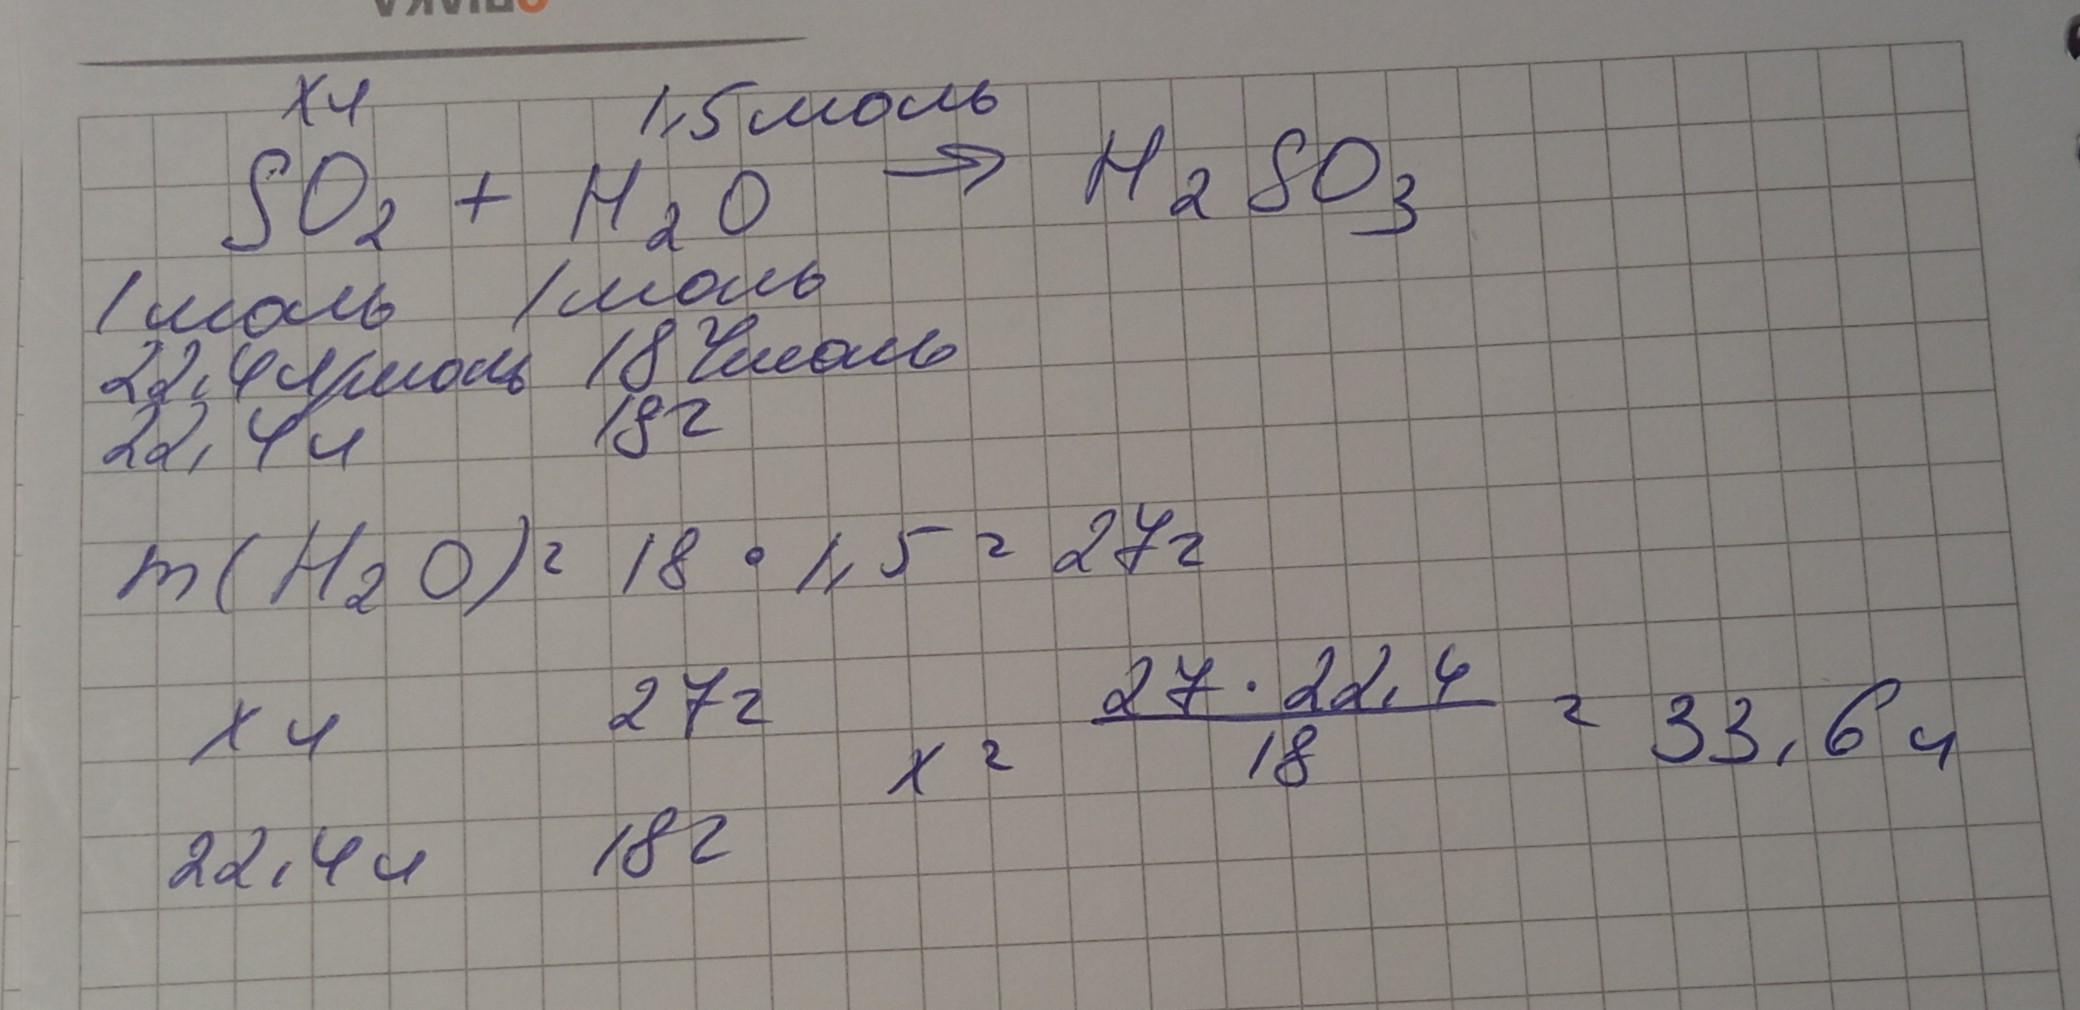 х л 1,5 моль
SO2 + H2O → H2SO3
1 моль 1 моль
22,4 л/моль 18 г/моль
22,4 л 18 г
m(H2O) = 18 · 1,5 = 27 г
х л 27 г x = 27 · 22,4 / 18 = 33,6 л
22,4 л 18 г